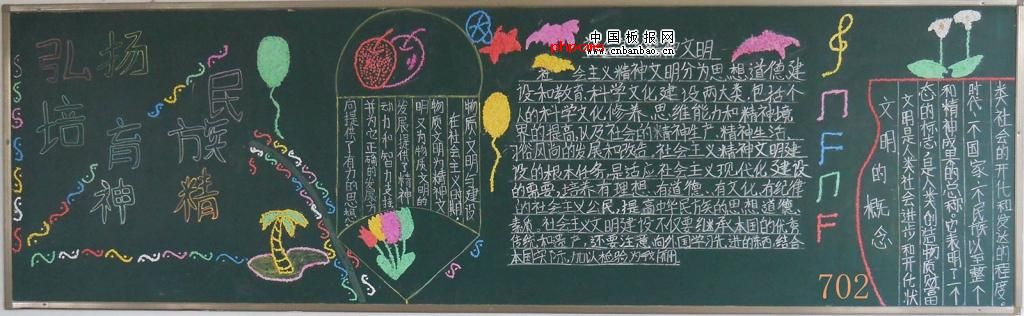 弘扬
培育
民族精神
物质文明与建设
在社会主义时期
物质文明为精神文
明又为物质文明的
发展提供了精神
动力和智力支持
并为它正确的发展方
向提供了有力的思想
中国板报网
www.cnbanbao.cn
文明
社会主义精神文明分为思想道德建
设和教育科学文化建设两大类,包括个
人的科学文化修养、思维能力和精神境
界的提高,以及社会的精神生产、精神生活、
习俗风尚的发展和改造。社会主义精神文明建
设的根本任务,是适应社会主义现代化建设
的需要,培养有理想、有道德、有文化、有纪律
的社会主义公民,提高中华民族的思想道德、
素质。社会主义文明建设不仅要继承本国的优秀
传统和遗产,还要注意向外国学习先进的东西,结合
本国实际,加以
文明的概念
文明是人类社会进步和开化状
态的标志,是人类创造物质财富
和精神成果的总称。也表明了一个
时代、一个国家、一个民族以至整个
类社会的开化和发达的程度。
702